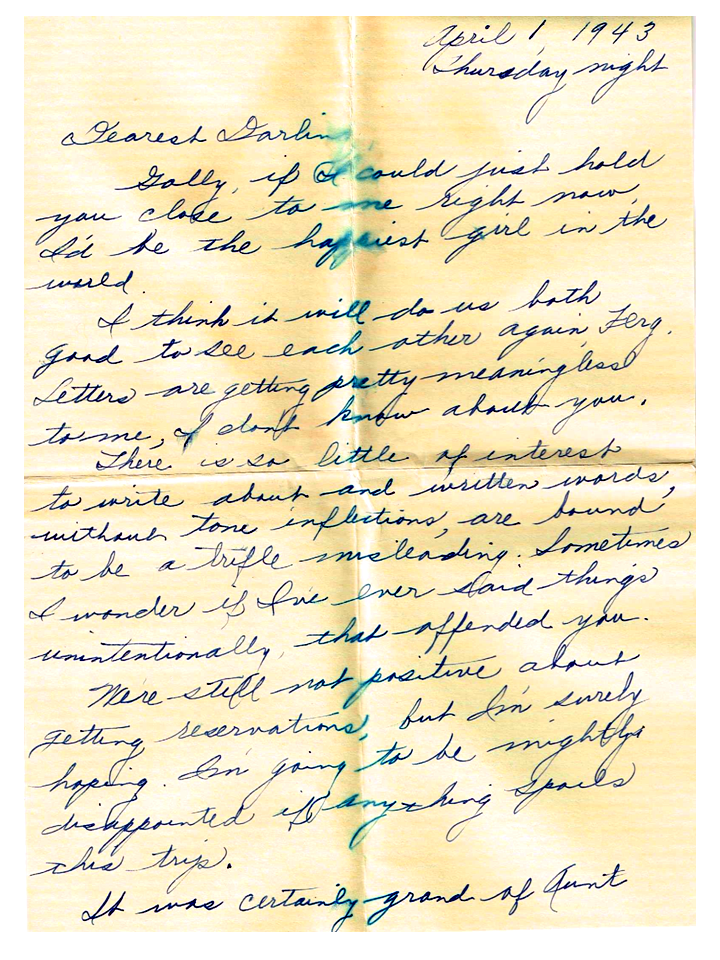 April 1, 1943
Thursday night
Dearest Darlin
Golly, if I could just hold
you close to me right now,
I'd be the happiest girl in the
world.
I think it will do us both
good to see each other again, Ferg.
Letters are getting pretty meaningless
to me, I don't know about you.
There is so little of interest
to write about and written words,
without tone inflections, are bound
to be a trifle misleading. Sometimes
I wonder if I've ever said things
unintentionally, that offended you.
We're still not positive about
getting reservations, but I'm surely
hoping. I'm going to be mightily
disappointed if anything spoils
this trip.
It was certainly grand of Aunt